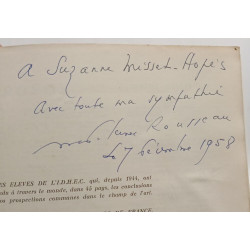 A Suzanne Misset-Hopès
avec toute ma sympathie
Rousseau
Le 7 février 1958
ES ELEVES DE L'I.D.H.E.C. qui, depuis 1944, ont
à travers le monde, dans 45 pays, les conclusions
prospections communes dans le champ de l'art.
DE FRANCE